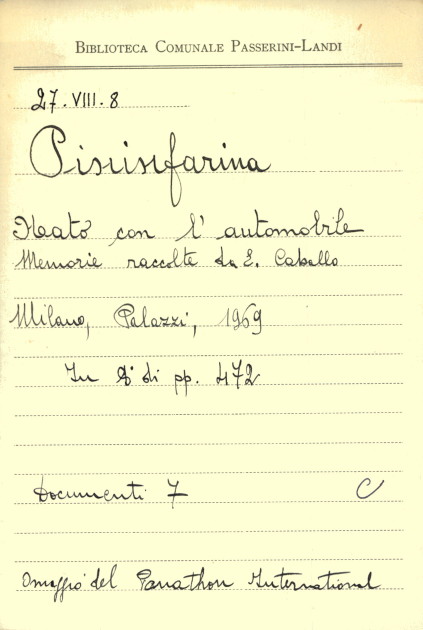 BIBLIOTECA COMUNALE PASSERINI-LANDI
27.VIII.8
Pininfarina
Nato con l'automobile
Memorie raccolte da E. Caballo
Milano, Palazzi, 1969
In 8° di pp. 472
Documenti 7 C
Omaggio del Panathon International